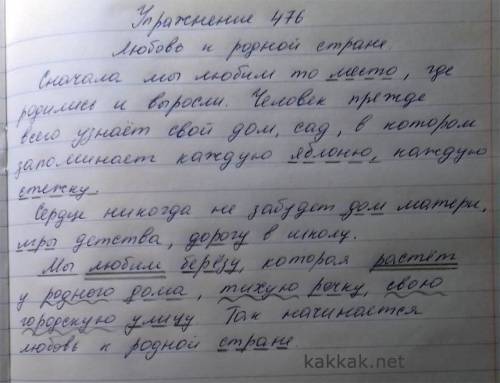 Упражнение 476
Любовь к родной стране.
Сначала мы любим то место, где
родились и выросли. Человек прежде
всего узнаёт свой дом, сад, в котором
запоминает каждую яблоню, каждую
стежку.
Сердце никогда не забудет дом матери,
игры детства, дорогу в школу.
Мы любим берёзу, которая растёт
у родного дома, тихую речку, свою
городскую улицу Так начинается
любовь к родной стране.
kakkak.net